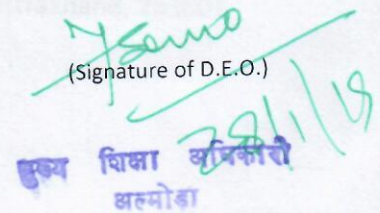 (Signature of D.E.O.)
28/1/19
मुख्य शिक्षा अधिकारी
अल्मोडा